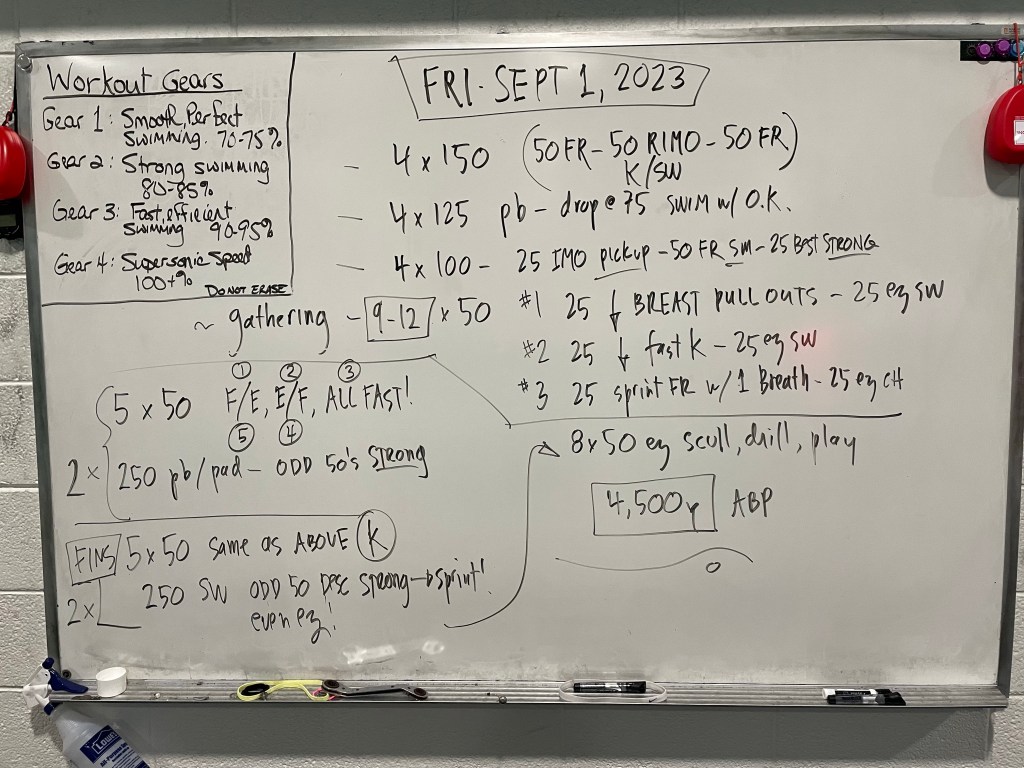 Workout Gears
Gear 1: Smooth, Perfect
SWIMMING. 70-75%
Gear 2: Strong SWIMMING
80-85%
Gear 3: Fast, efficient
SWIMMING 90-95%
Gear 4: Supersonic Speed
100+%
DO NOT ERASE
FRI. SEPT 1, 2023
- 4 x 150 (50 FR - 50 RIMO - 50 FR)
K/SW
- 4 x 125 pb - drop @ 75 SWIM w/ O.K.
- 4 x 100 - 25 IMO pickup - 50 FR SM - 25 Best STRONG
~ gathering - 9-12 x 50
#1 25 ↓ BREAST PULL OUTS - 25 ez SW
#2 25 ↓ fast K - 25 ez SW
#3 25 sprint FR w/ 1 Breath - 25 ez CH
① ② ③
5 x 50 F/E, E/F, ALL FAST!
⑤ ④
2x 250 pb/pad - ODD 50's STRONG
FINS 5 x 50 same as ABOVE K
2x 250 SW ODD 50 DESC STRONG → sprint!
even ez!
8x50 ez scull, drill, play
4,500y ABP
Lowe's